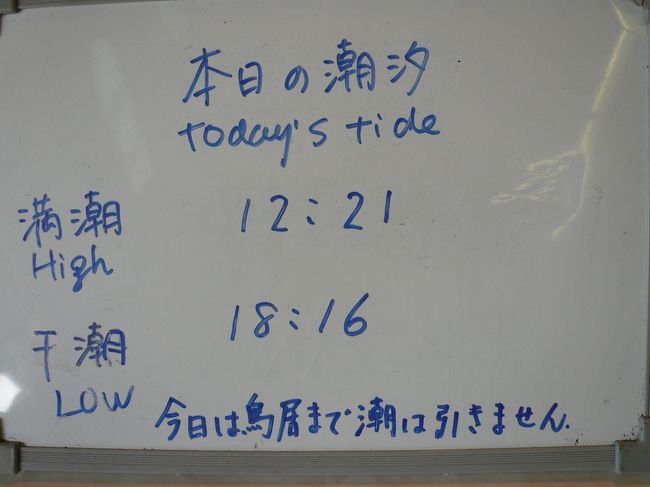 本日の潮汐
today's tide
満潮 12:21
High
干潮 18:16
LOW
今日は鳥居まで潮は引きません.